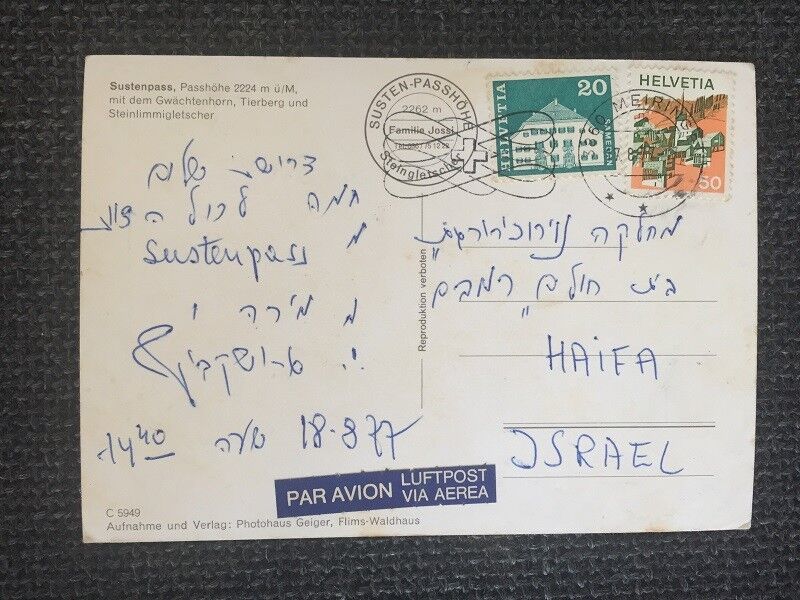 Sustenpass, Passhöhe 2224 m ü/M,
mit dem Gwächtenhorn, Tierberg und
Steinlimmigletscher
SUSTEN-PASSHÖHE
2262 m
Familie Jossi
Steingletscher
HELVETIA
20
SAMEDAN
HELVETIA
50
MEIRIN
דרישת שלום
חמה לכל הצוות
מ Sustenpass
מ מירה ו
18-8 77 שעה 14⁴⁰
Reproduktion verboten
מחלקה נוירוכירורגית
בית חולים רמב״ם
HAIFA
ISRAEL
PAR AVION LUFTPOST
VIA AEREA
C 5949
Aufnahme und Verlag: Photohaus Geiger, Flims-Waldhaus